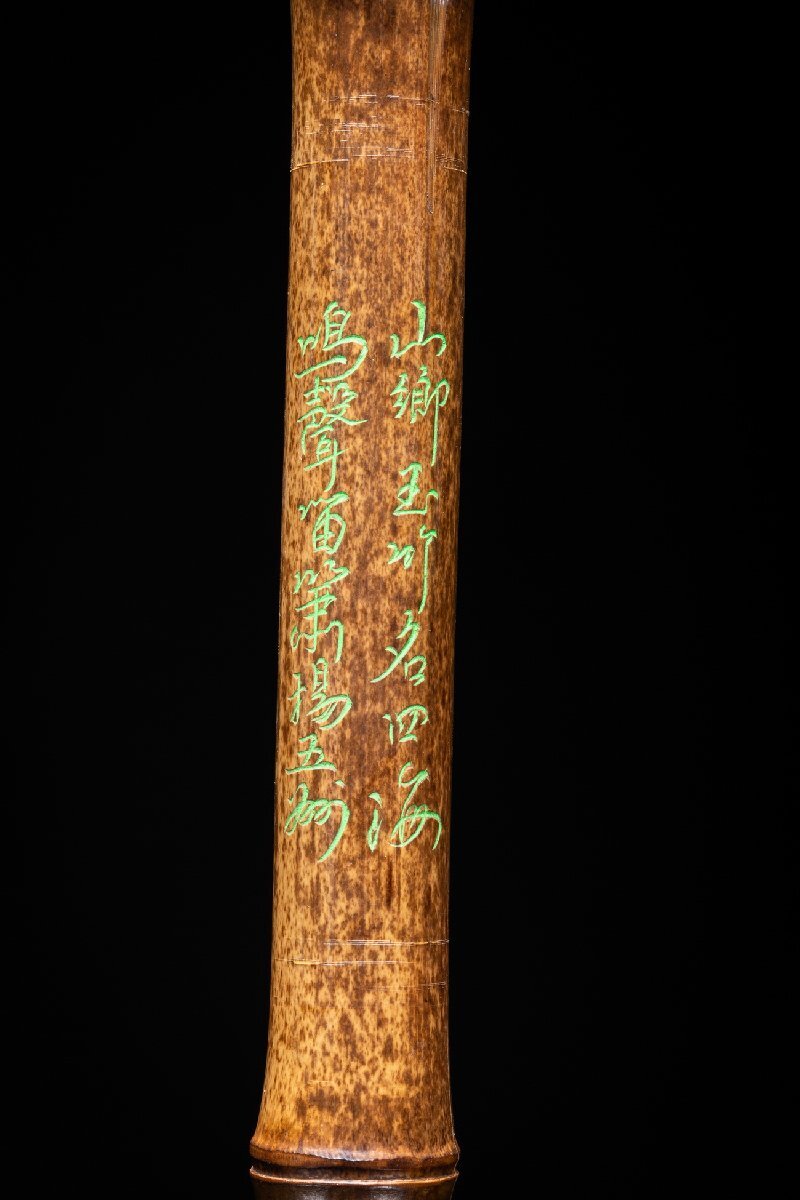 山鄉玉竹名四海
鳴聲笛簫揚五洲